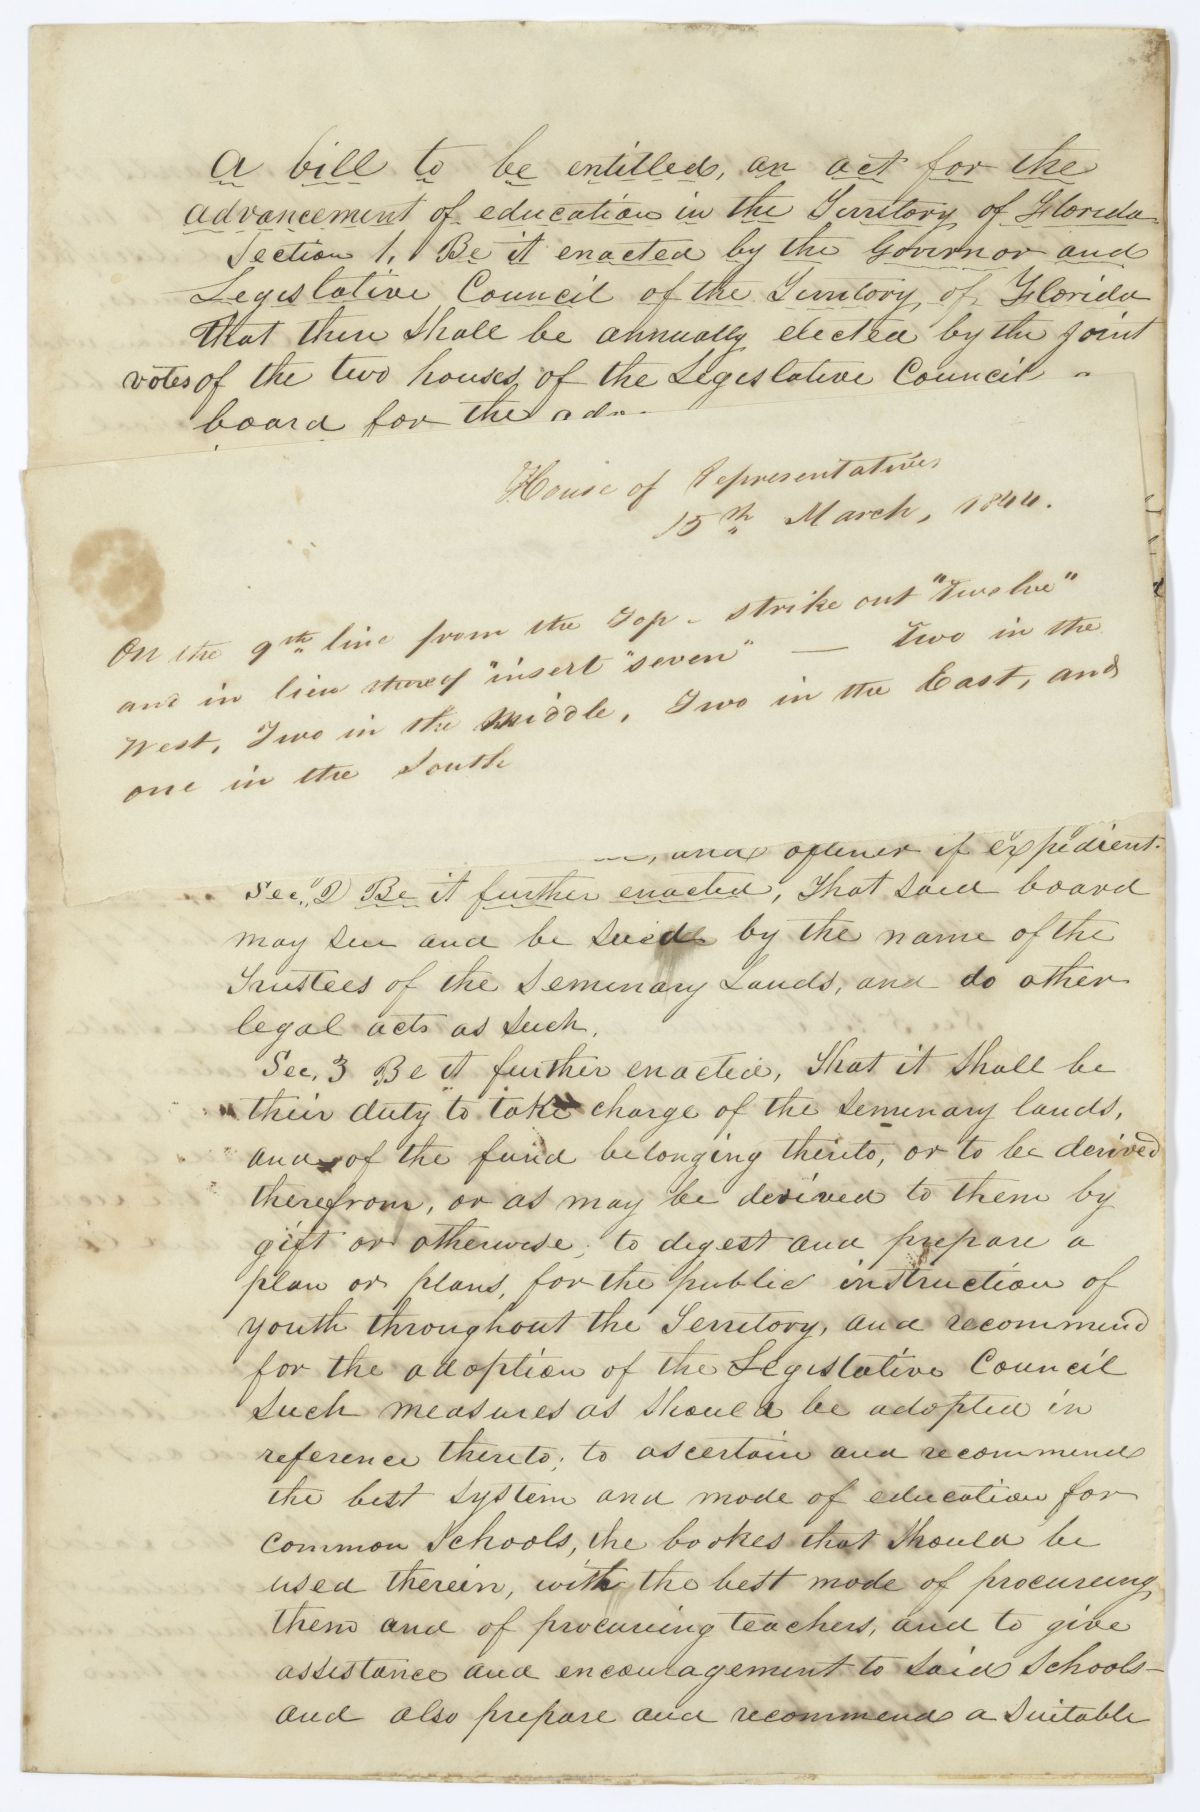 A bill to be entitled, an act for the
advancement of education in the Territory of Florida
Section 1. Be it enacted by the Governor and
Legislative Council of the Territory of Florida
that there shall be annually elected by the joint
votes of the two houses of the Legislative Council
board for the
House of Representatives
15th March, 1844.
On the 9th line from the Top - strike out "Twelve"
and in lieu thereof "insert "seven" — Two in the
West, Two in the Middle, Two in the East, and
one in the South
, and oftener if expedient.
Sec. 2) Be it further enacted, That said board
may sue and be sued by the name of the
Trustees of the Seminary Lands, and do other
legal acts as such.
Sec. 3 Be it further enacted, That it shall be
their duty to take charge of the seminary lands,
and of the fund belonging thereto, or to be derived
therefrom, or as may be derived to them by
gift or otherwise; to digest and prepare a
plan or plans, for the public instruction of
youth throughout the Territory, and recommend
for the adoption of the Legislative Council
such measures as should be adopted in
reference thereto; to ascertain and recommend
the best system and mode of education for
common schools, the bookes that should be
used therein, with the best mode of procureing
them and of procureing teachers, and to give
assistance and encouragement to said schools—
and also prepare and recommend a suitable